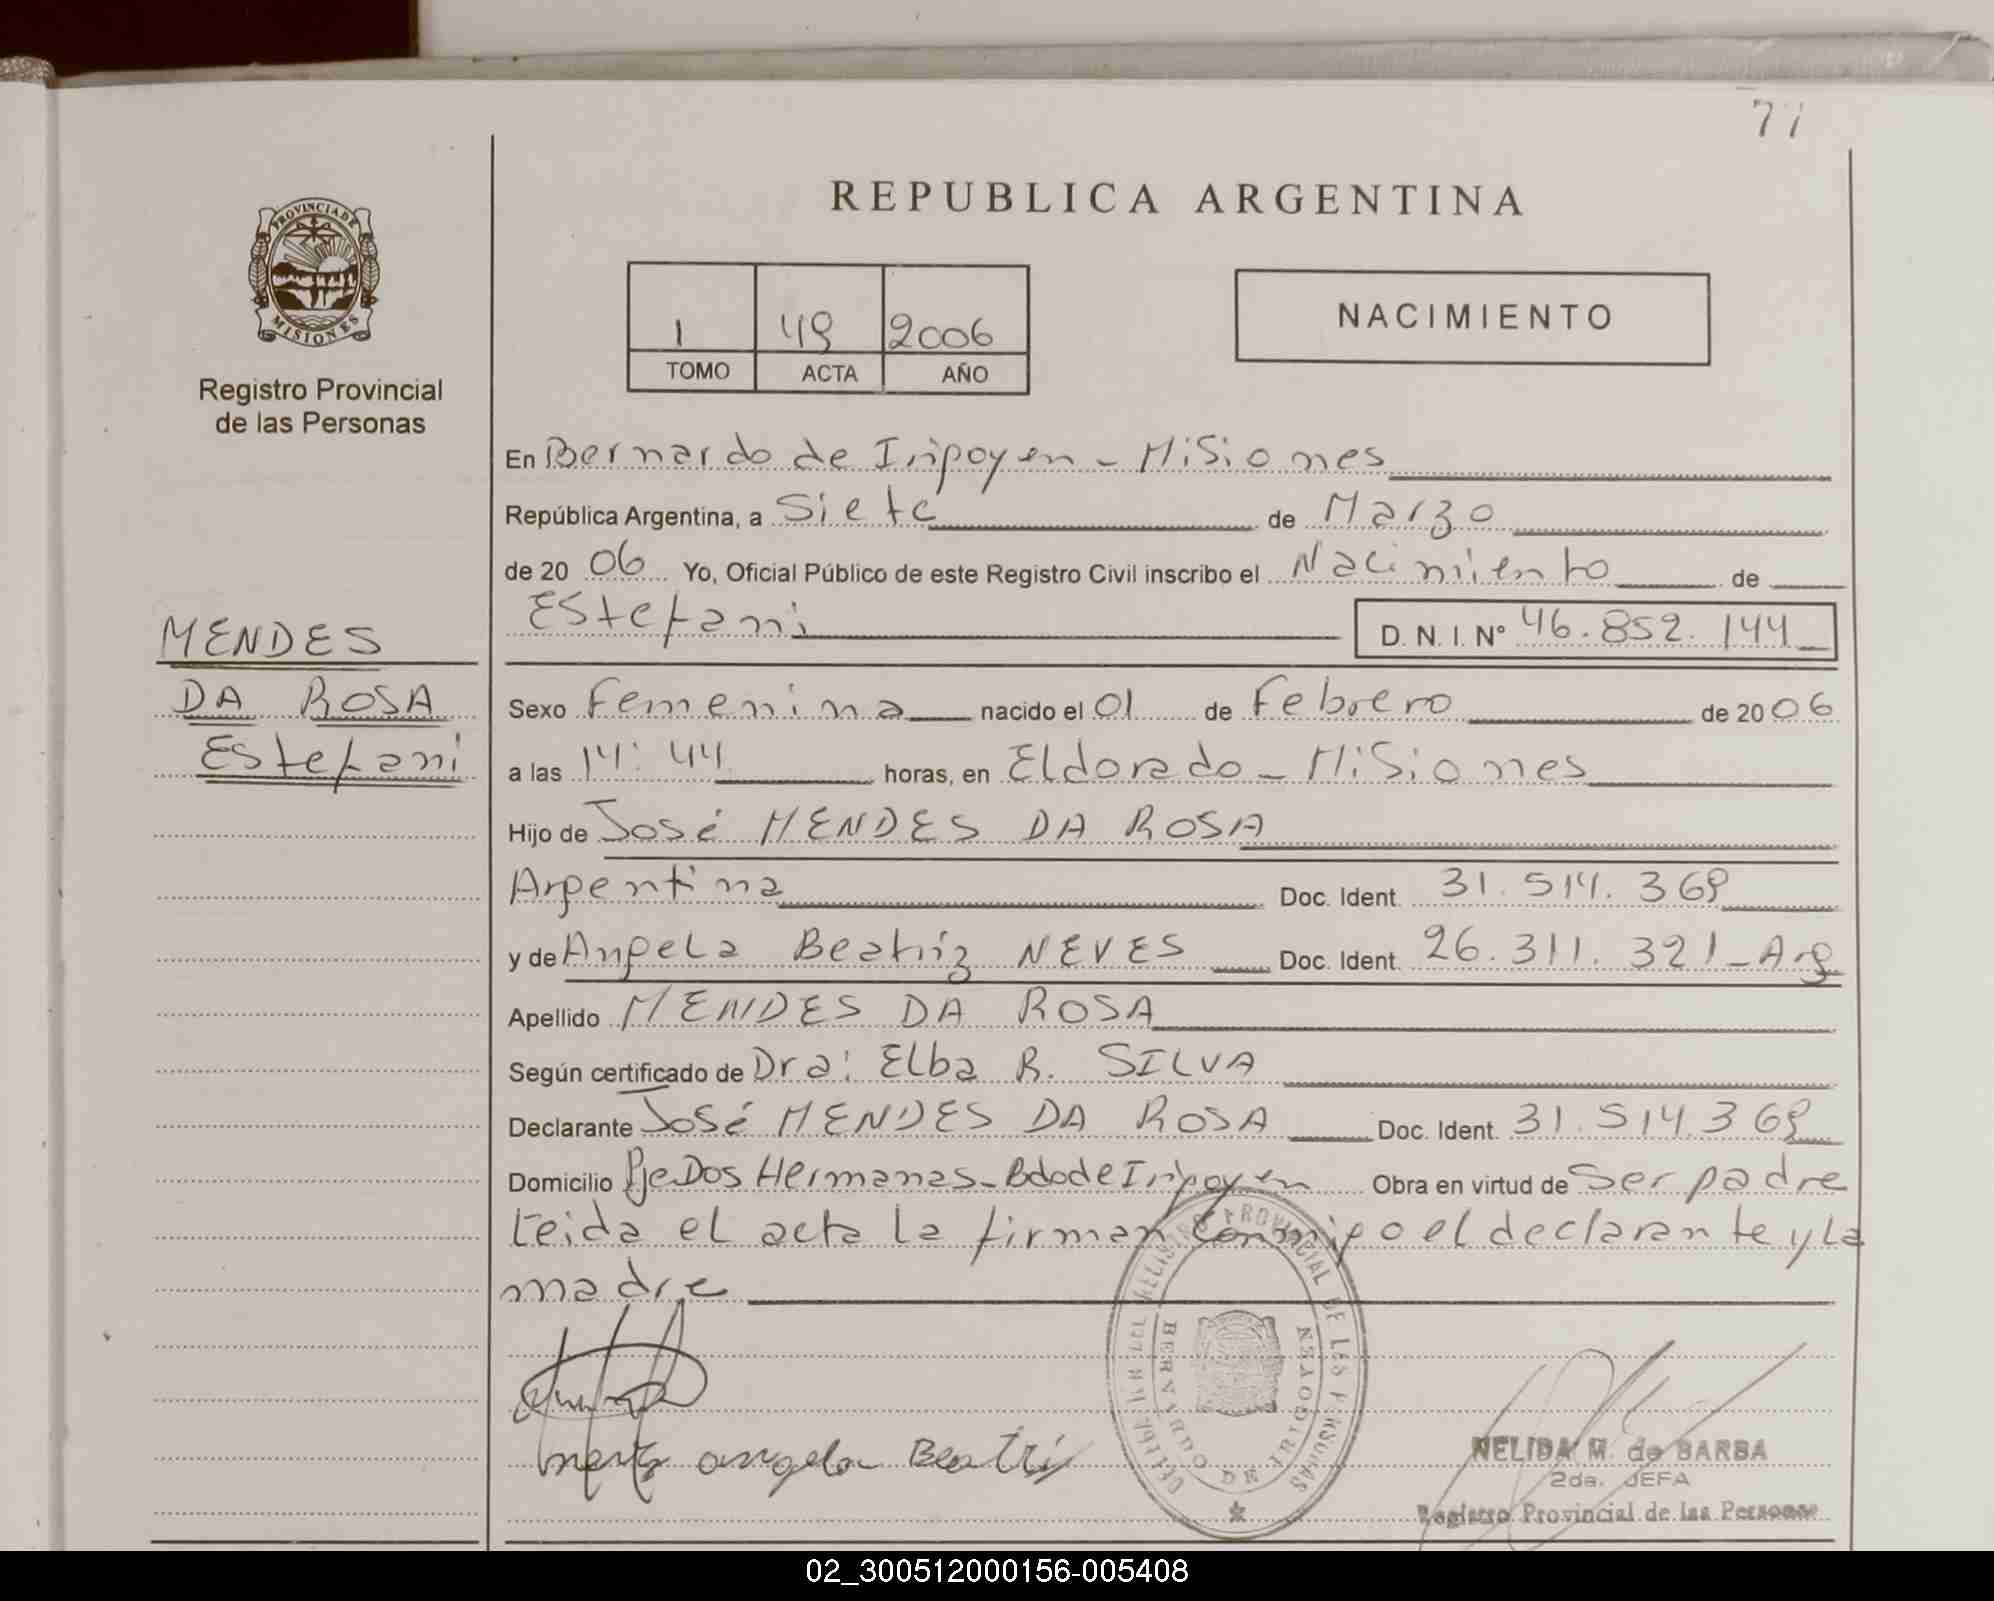 77
REPUBLICA ARGENTINA
PROVINCIA DE
MISIONES
Registro Provincial
de las Personas
1 49 2006
TOMO ACTA AÑO
NACIMIENTO
En Bernardo de Irigoyen - Misiones
República Argentina, a Siete de Marzo
de 20 06 Yo, Oficial Público de este Registro Civil inscribo el Nacimiento de
Estefani D. N. I. Nº 46.852.144
MENDES
DA ROSA
Estefani
Sexo Femenina nacido el 01 de Febrero de 20 06
a las 14:44 horas, en Eldorado - Misiones
Hijo de José MENDES DA ROSA
Argentina Doc. Ident. 31.514.369
y de Angela Beatriz NEVES Doc. Ident. 26.311.321 - Arg
Apellido MENDES DA ROSA
Según certificado de Dra: Elba R. SILVA
Declarante José MENDES DA ROSA Doc. Ident. 31.514.369
Domicilio Pje Dos Hermanas - Bdo de Irigoyen Obra en virtud de Ser padre
Leida el acta la firman conmigo el declarante y la
madre
angela Beatriz
REGISTRO PROVINCIAL DE LAS PERSONAS
BERNARDO DE IRIGOYEN
NELIDA M. de BARBA
2da. JEFA
Registro Provincial de las Personas
02_300512000156-005408